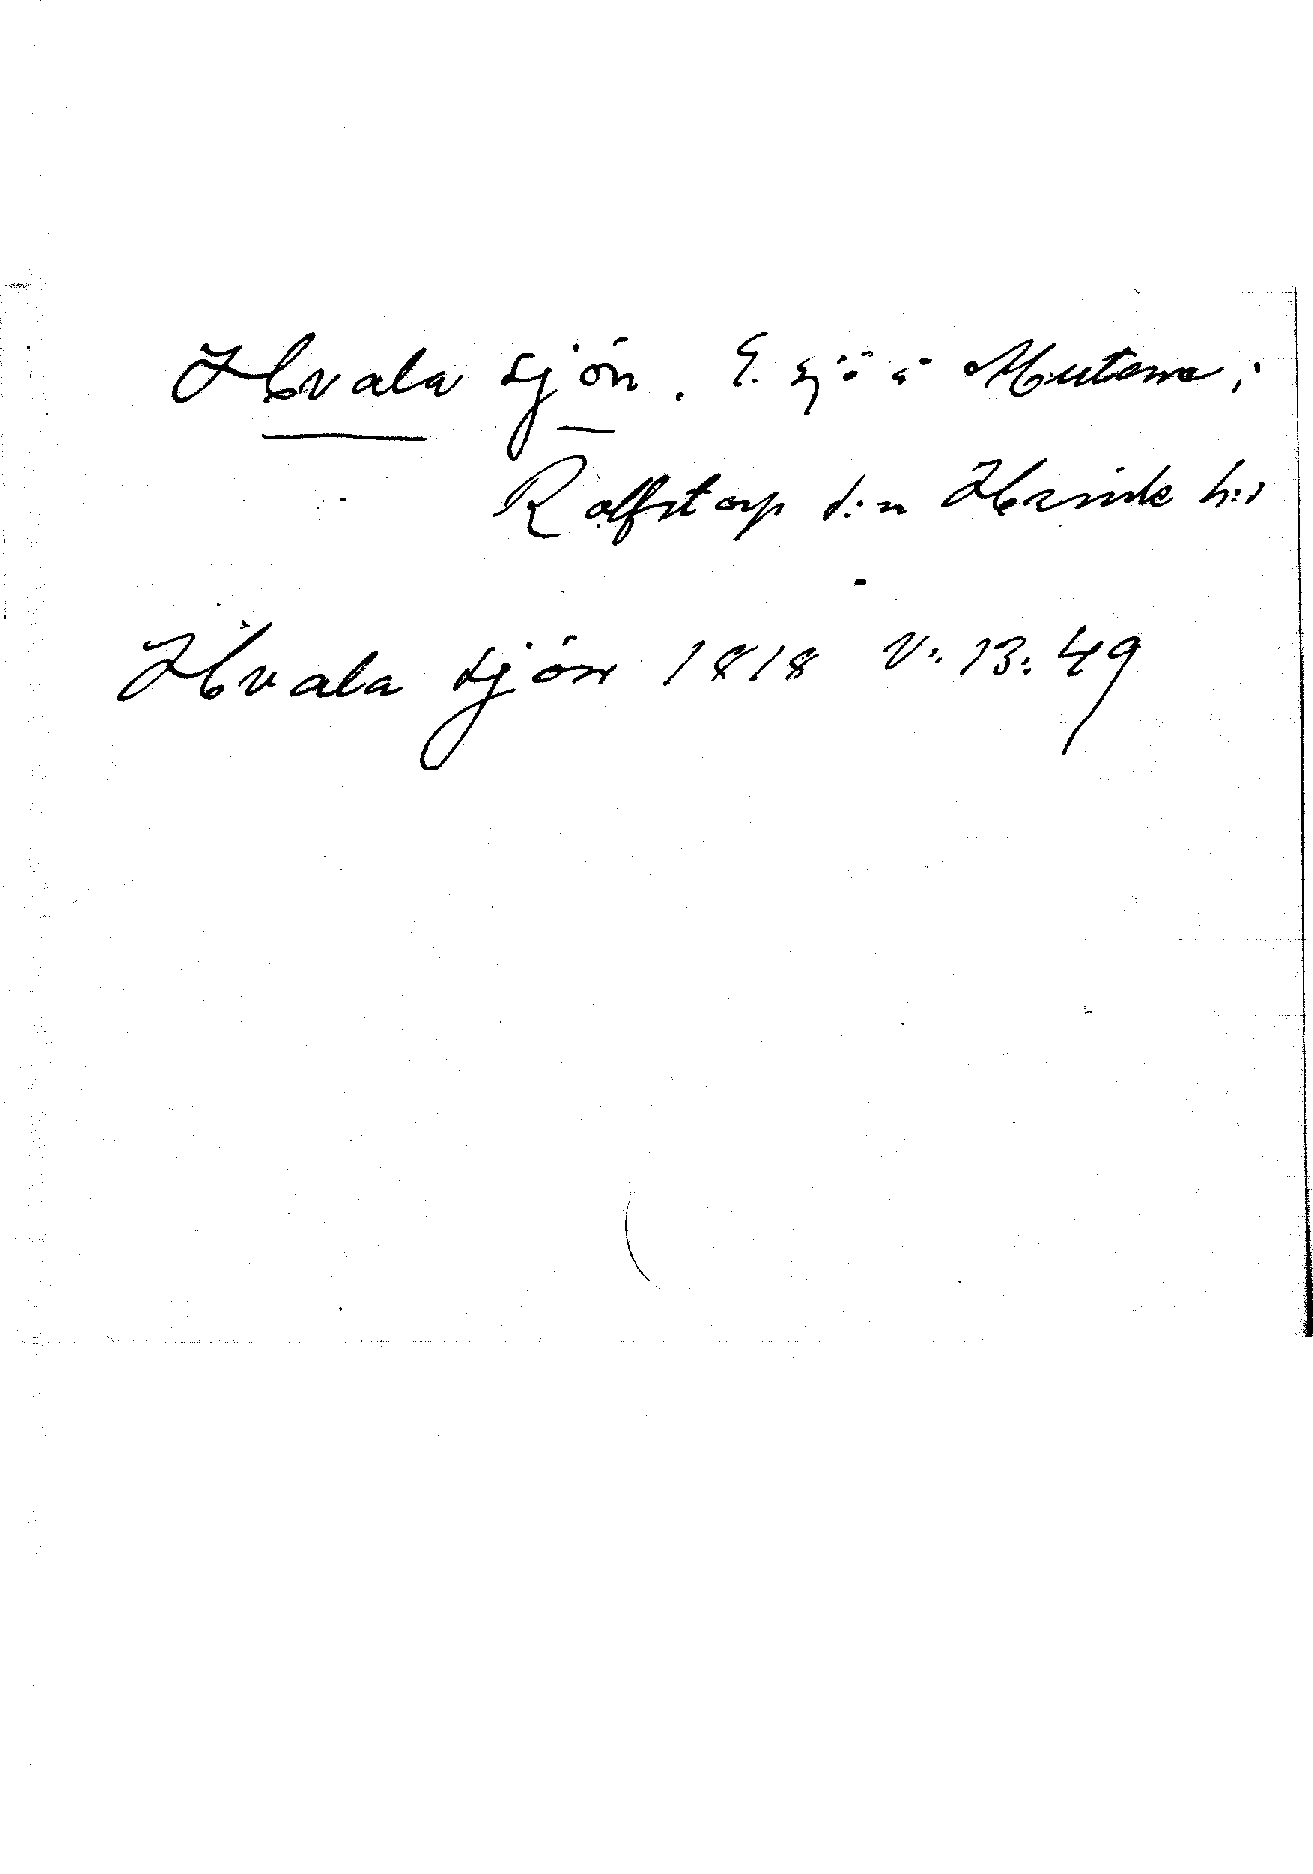 Hvala sjön. E. sjö å Mutome i
Rolfstorp s:n Himle h:d
Hvala sjön 1818 V: 13: 49